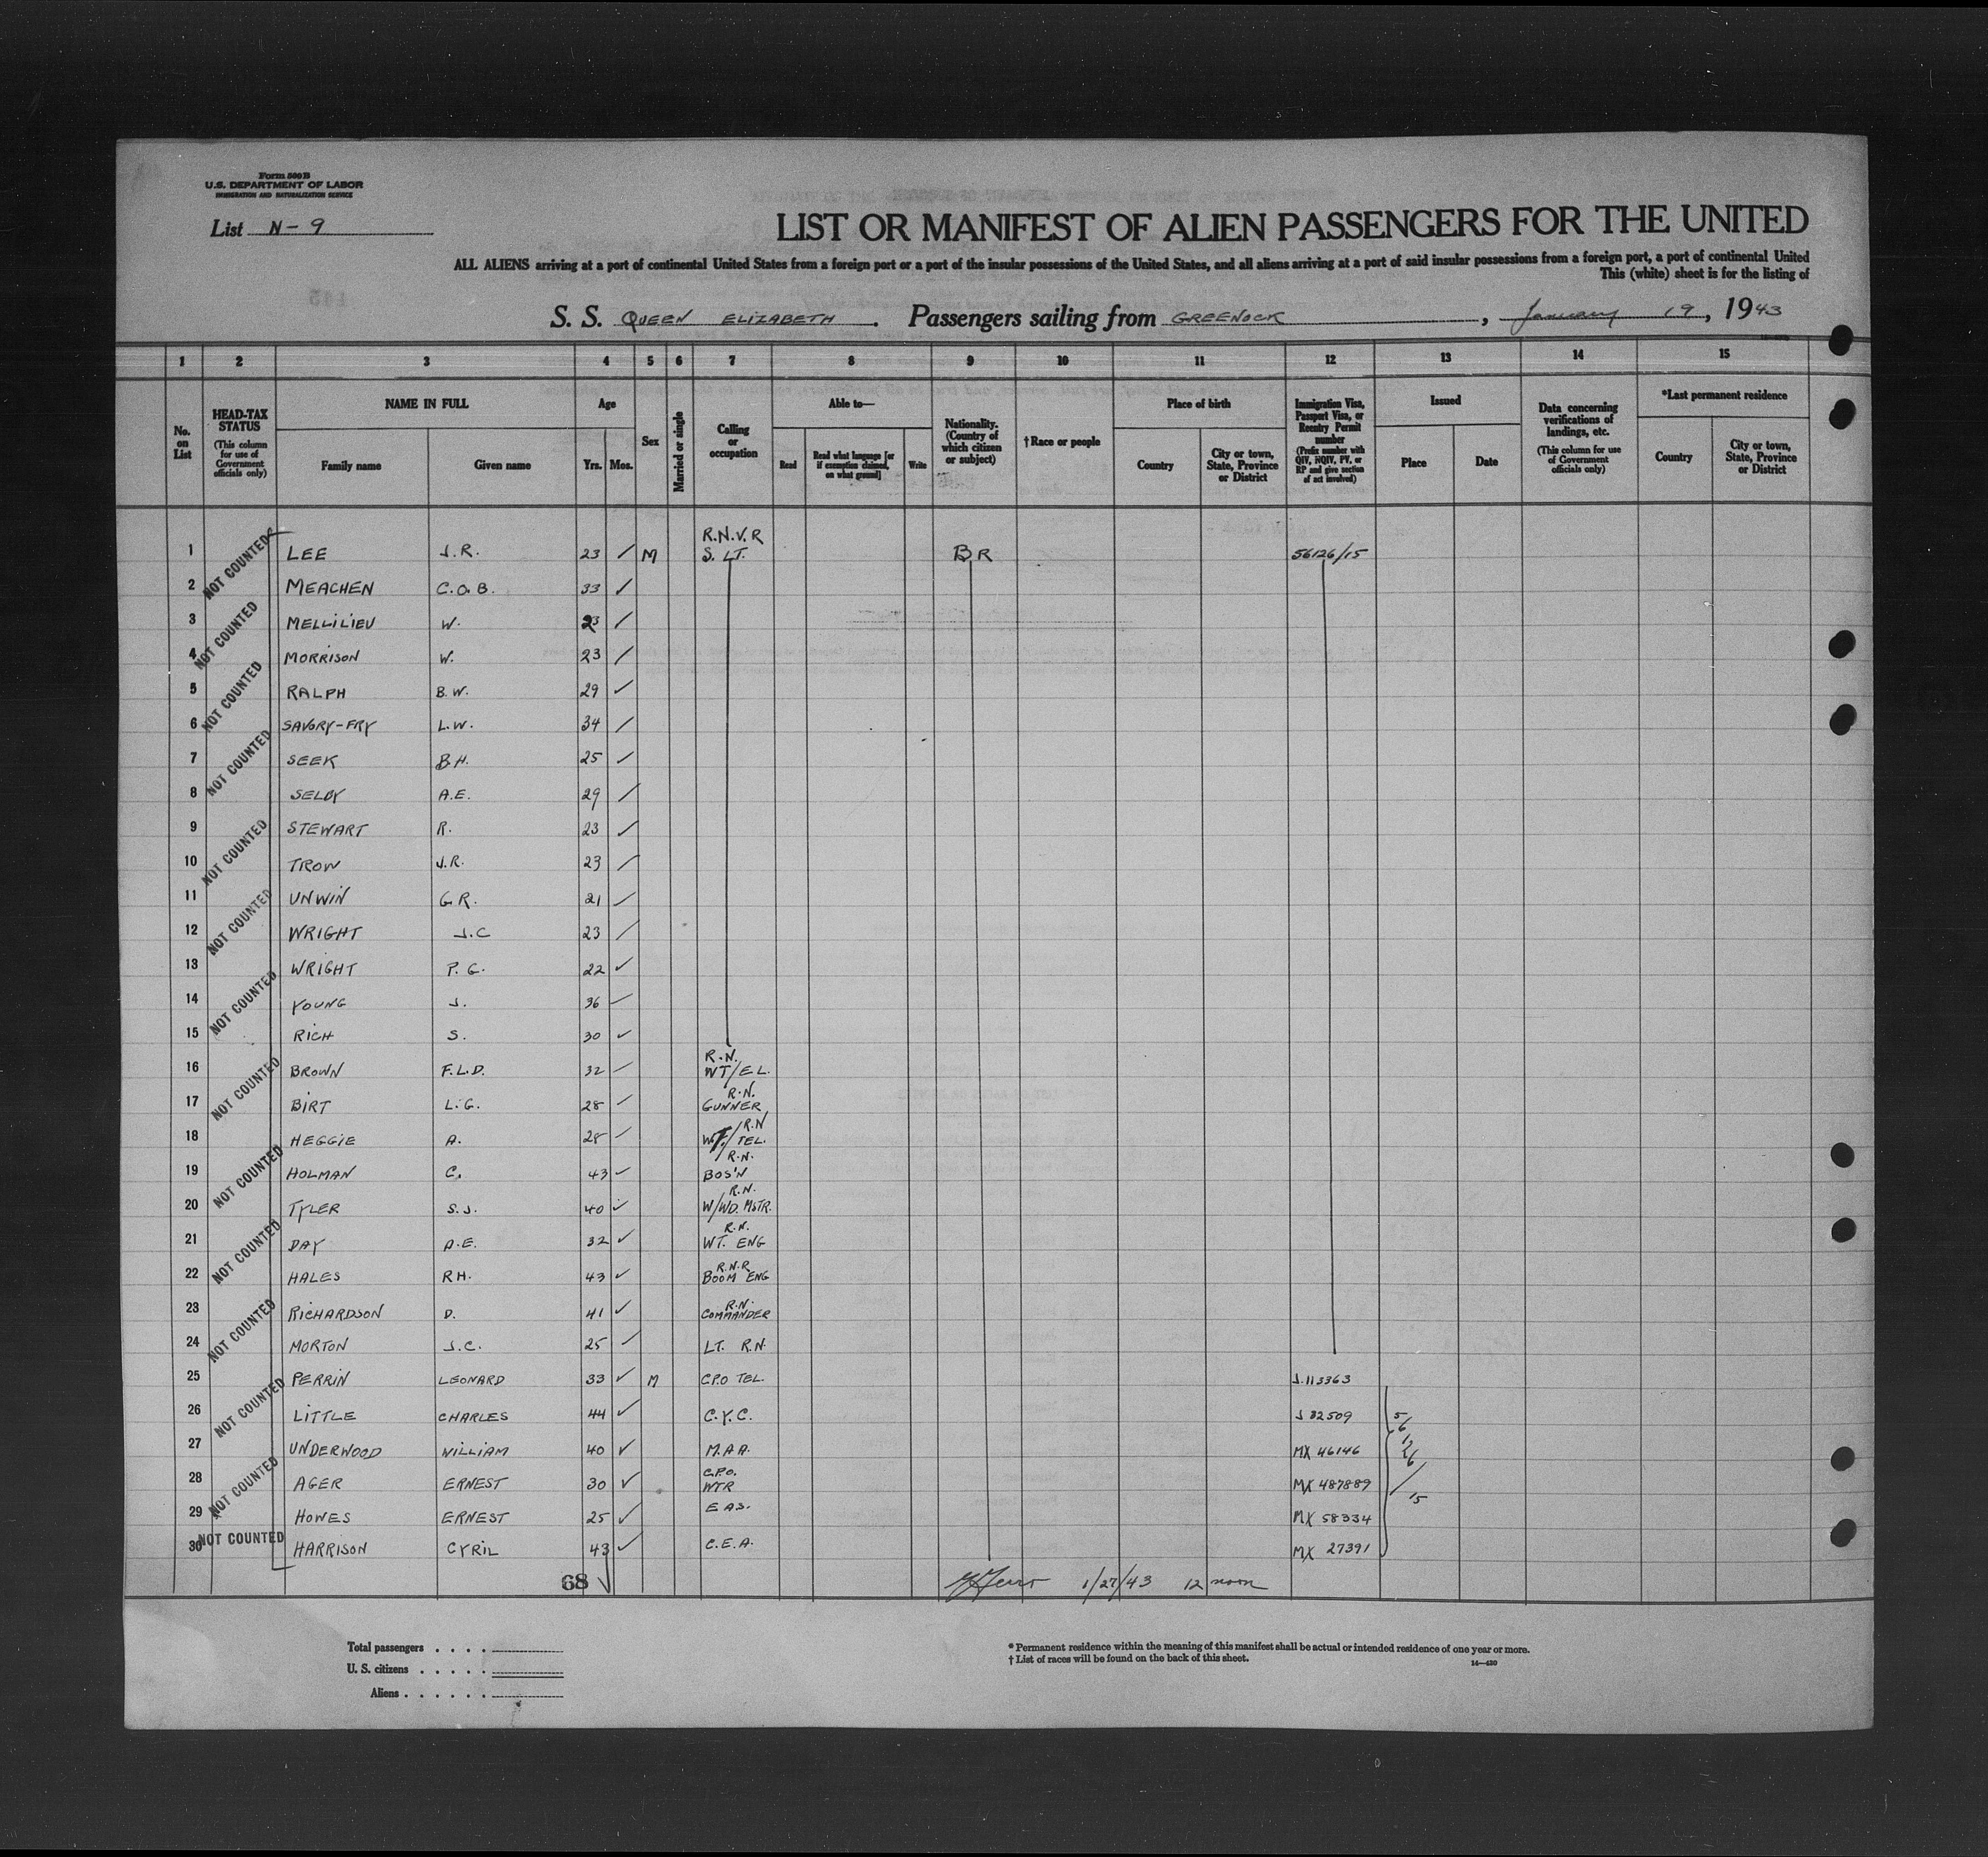 Form 500 B
U.S. DEPARTMENT OF LABOR
IMMIGRATION AND NATURALIZATION SERVICE
List N-9
LIST OR MANIFEST OF ALIEN PASSENGERS FOR THE UNITED
ALL ALIENS arriving at a port of continental United States from a foreign port or a port of the insular possessions of the United States, and all aliens arriving at a port of said insular possessions from a foreign port, a port of continental United
This (white) sheet is for the listing of
S. S. QUEEN ELIZABETH. Passengers sailing from GREENOCK, January 19, 1943
1 2 3 4 5 6 7 8 9 10 11 12 13 14 15
No. on List
HEAD-TAX STATUS (This column for use of Government officials only)
NAME IN FULL
Family name
Given name
Age
Yrs. Mos.
Sex
Married or single
Calling or occupation
Able to—
Read
Read what language [or if exemption claimed, on what ground]
Write
Nationality. (Country of which citizen or subject)
† Race or people
Place of birth
Country
City or town, State, Province or District
Immigration Visa, Passport Visa, or Reentry Permit number (Prefix number with QIV, NQIV, PV, or RP and give section of act involved)
Issued
Place
Date
Data concerning verifications of landings, etc. (This column for use of Government officials only)
*Last permanent residence
Country
City or town, State, Province or District
1 NOT COUNTED LEE J.R. 23 ✓ M R.N.V.R S. LT. BR 56126/15
2 MEACHEN C.O.B. 33 ✓
3 NOT COUNTED MELLILIEU W. 23 ✓
4 MORRISON W. 23 ✓
5 NOT COUNTED RALPH B.W. 29 ✓
6 SAVORY-FRY L.W. 34 ✓
7 NOT COUNTED SEEK B.H. 25 ✓
8 SELBY A.E. 29 ✓
9 NOT COUNTED STEWART R. 23 ✓
10 TROW J.R. 23 ✓
11 NOT COUNTED UNWIN G.R. 21 ✓
12 WRIGHT J.C 23 ✓
13 NOT COUNTED WRIGHT P.G. 22 ✓
14 YOUNG J. 36 ✓
15 RICH S. 30 ✓
16 NOT COUNTED BROWN F.L.D. 32 ✓ R.N. WT/EL.
17 BIRT L.G. 28 ✓ R.N. GUNNER
18 HEGGIE A. 28 ✓ R.N W.T./TEL.
19 NOT COUNTED HOLMAN C. 43 ✓ R.N. BOS'N
20 TYLER S.J. 40 ✓ R.N. W/WD. MSTR.
21 NOT COUNTED DAY A.E. 32 ✓ R.N. WT. ENG
22 HALES R.H. 43 ✓ R.N.R BOOM ENG
23 NOT COUNTED RICHARDSON D. 41 ✓ R.N. COMMANDER
24 MORTON J.C. 25 ✓ LT. R.N.
25 NOT COUNTED PERRIN LEONARD 33 ✓ M C.P.O TEL. J.113363
26 LITTLE CHARLES 44 ✓ C.Y.C. J 32509
27 UNDERWOOD WILLIAM 40 ✓ M.A.A. MX 46146
28 NOT COUNTED AGER ERNEST 30 ✓ C.P.O. WTR MX 487889
29 HOWES ERNEST 25 ✓ E A5. MX 58334
30 NOT COUNTED HARRISON CYRIL 43 ✓ C.E.A. MX 27391
68 1/27/43 12 noon
Total passengers
U. S. citizens
Aliens
* Permanent residence within the meaning of this manifest shall be actual or intended residence of one year or more.
† List of races will be found on the back of this sheet.
14—420